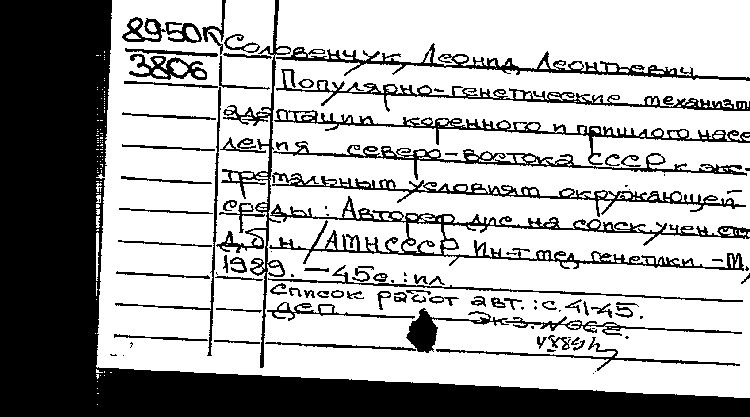 89-50п
3806
Соловенчук, Леонид Леонтьевич
Популярно-генетические механизм
адаптации коренного и пришлого насе
ления северо-востока СССР к экс-
тремальным условиям окружающей
среды: Автореф дис. на соиск. учен. ст
д. б. н. / АМН СССР, Ин-т мед. генетики. -М.,
1989. - 45с.: ил.
Список работ авт.: с. 41-45.
ДСП
Экз. N